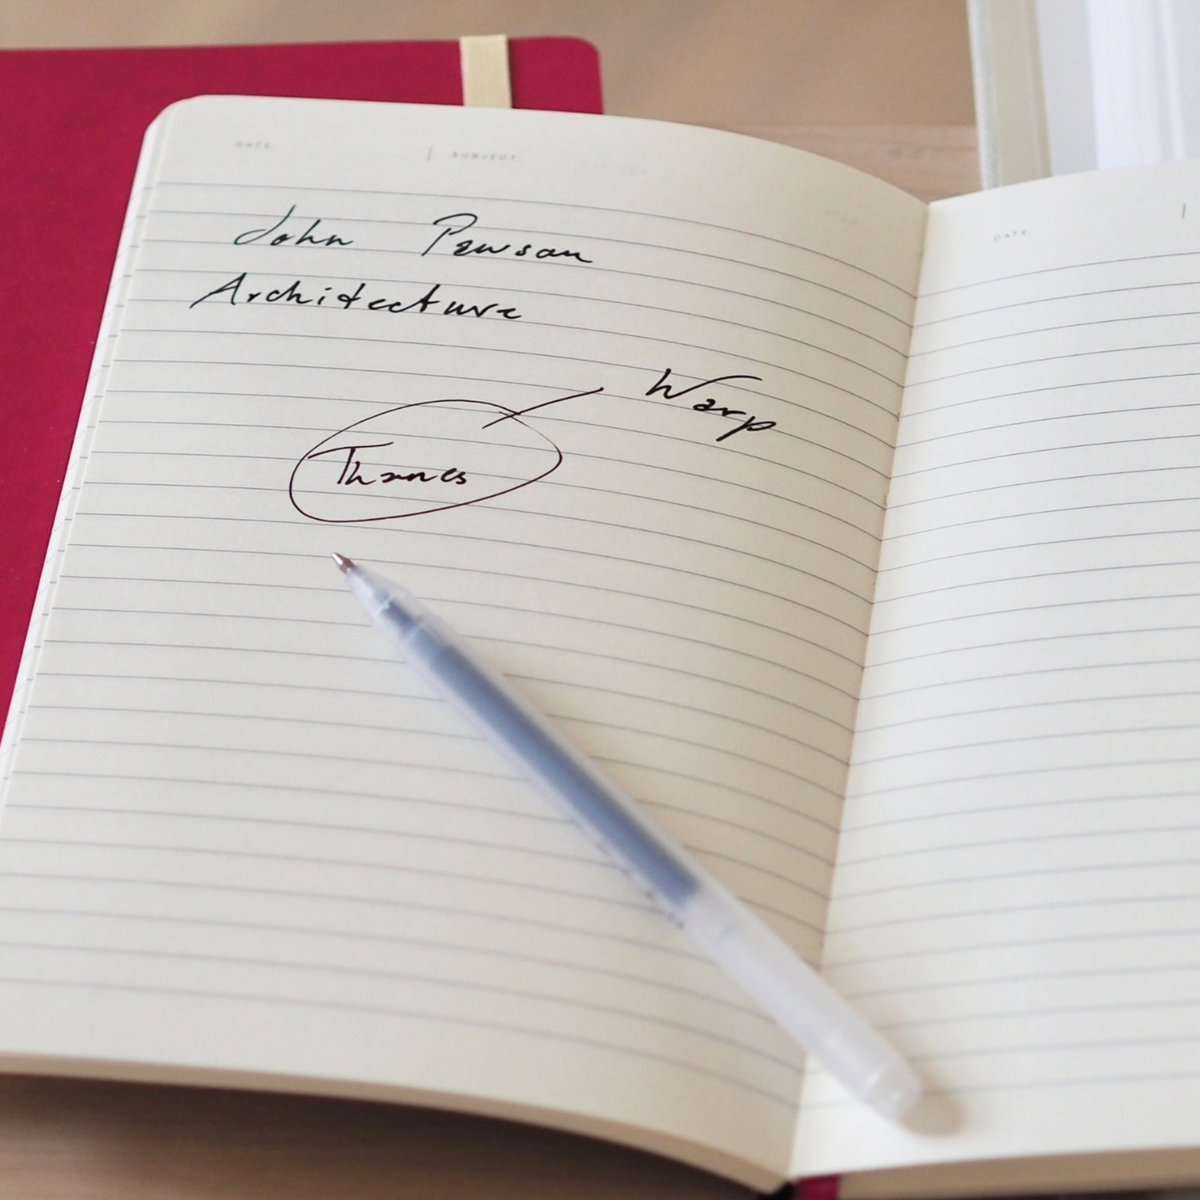 DATE: | SUBJECT:
John Pawson
Architecture
Warp
Thames
DATE: